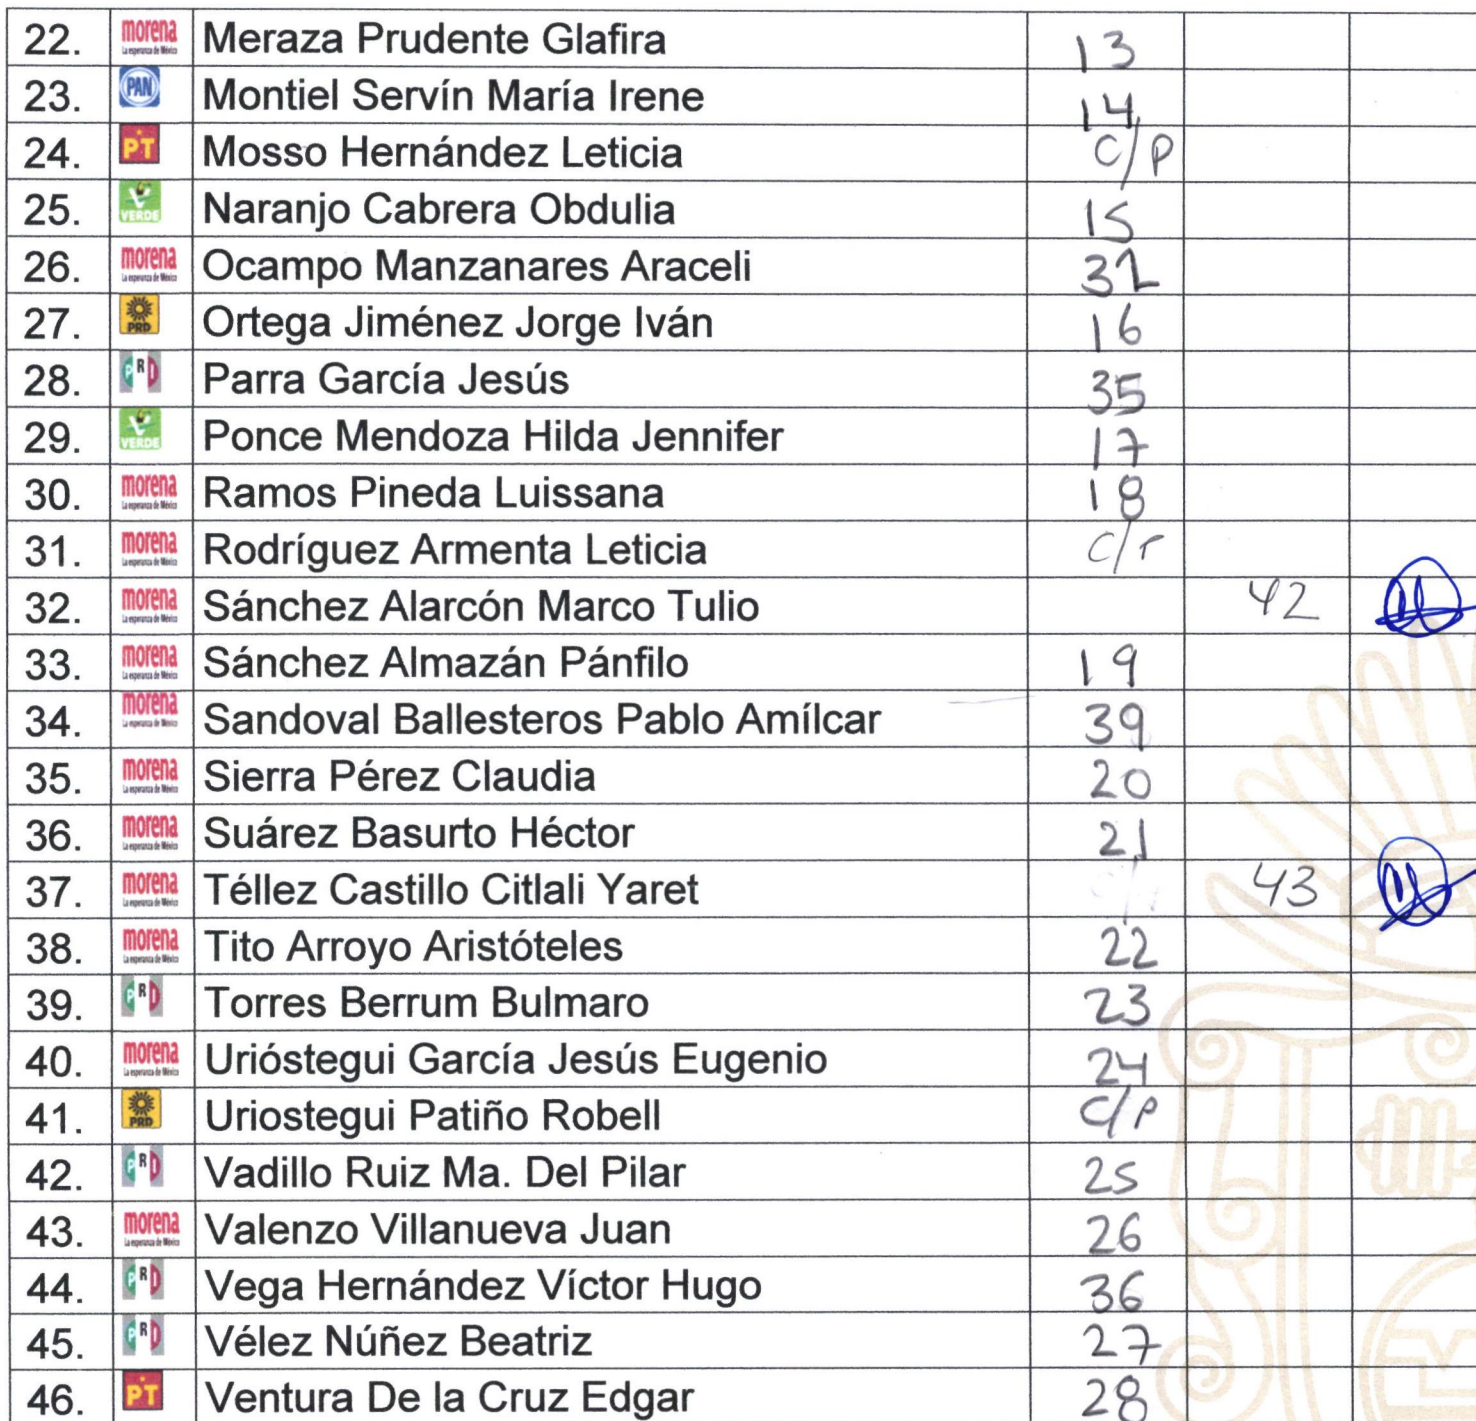 22. morena La esperanza de México Meraza Prudente Glafira 13
23. PAN Montiel Servín María Irene 14
24. PT Mosso Hernández Leticia C/P
25. VERDE Naranjo Cabrera Obdulia 15
26. morena La esperanza de México Ocampo Manzanares Araceli 32
27. PRD Ortega Jiménez Jorge Iván 16
28. PRI Parra García Jesús 35
29. VERDE Ponce Mendoza Hilda Jennifer 17
30. morena La esperanza de México Ramos Pineda Luissana 18
31. morena La esperanza de México Rodríguez Armenta Leticia
32. morena La esperanza de México Sánchez Alarcón Marco Tulio 42
33. morena La esperanza de México Sánchez Almazán Pánfilo 19
34. morena La esperanza de México Sandoval Ballesteros Pablo Amílcar 39
35. morena La esperanza de México Sierra Pérez Claudia 20
36. morena La esperanza de México Suárez Basurto Héctor 21
37. morena La esperanza de México Téllez Castillo Citlali Yaret 43
38. morena La esperanza de México Tito Arroyo Aristóteles 22
39. PRI Torres Berrum Bulmaro 23
40. morena La esperanza de México Urióstegui García Jesús Eugenio 24
41. PRD Uriostegui Patiño Robell C/P
42. PRI Vadillo Ruiz Ma. Del Pilar 25
43. morena La esperanza de México Valenzo Villanueva Juan 26
44. PRI Vega Hernández Víctor Hugo 36
45. PRI Vélez Núñez Beatriz 27
46. PT Ventura De la Cruz Edgar 28